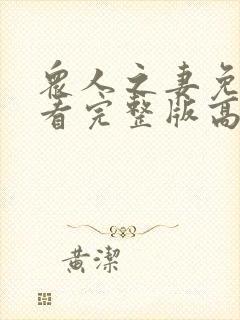 眾人之妻免
看完整版高
黄潔